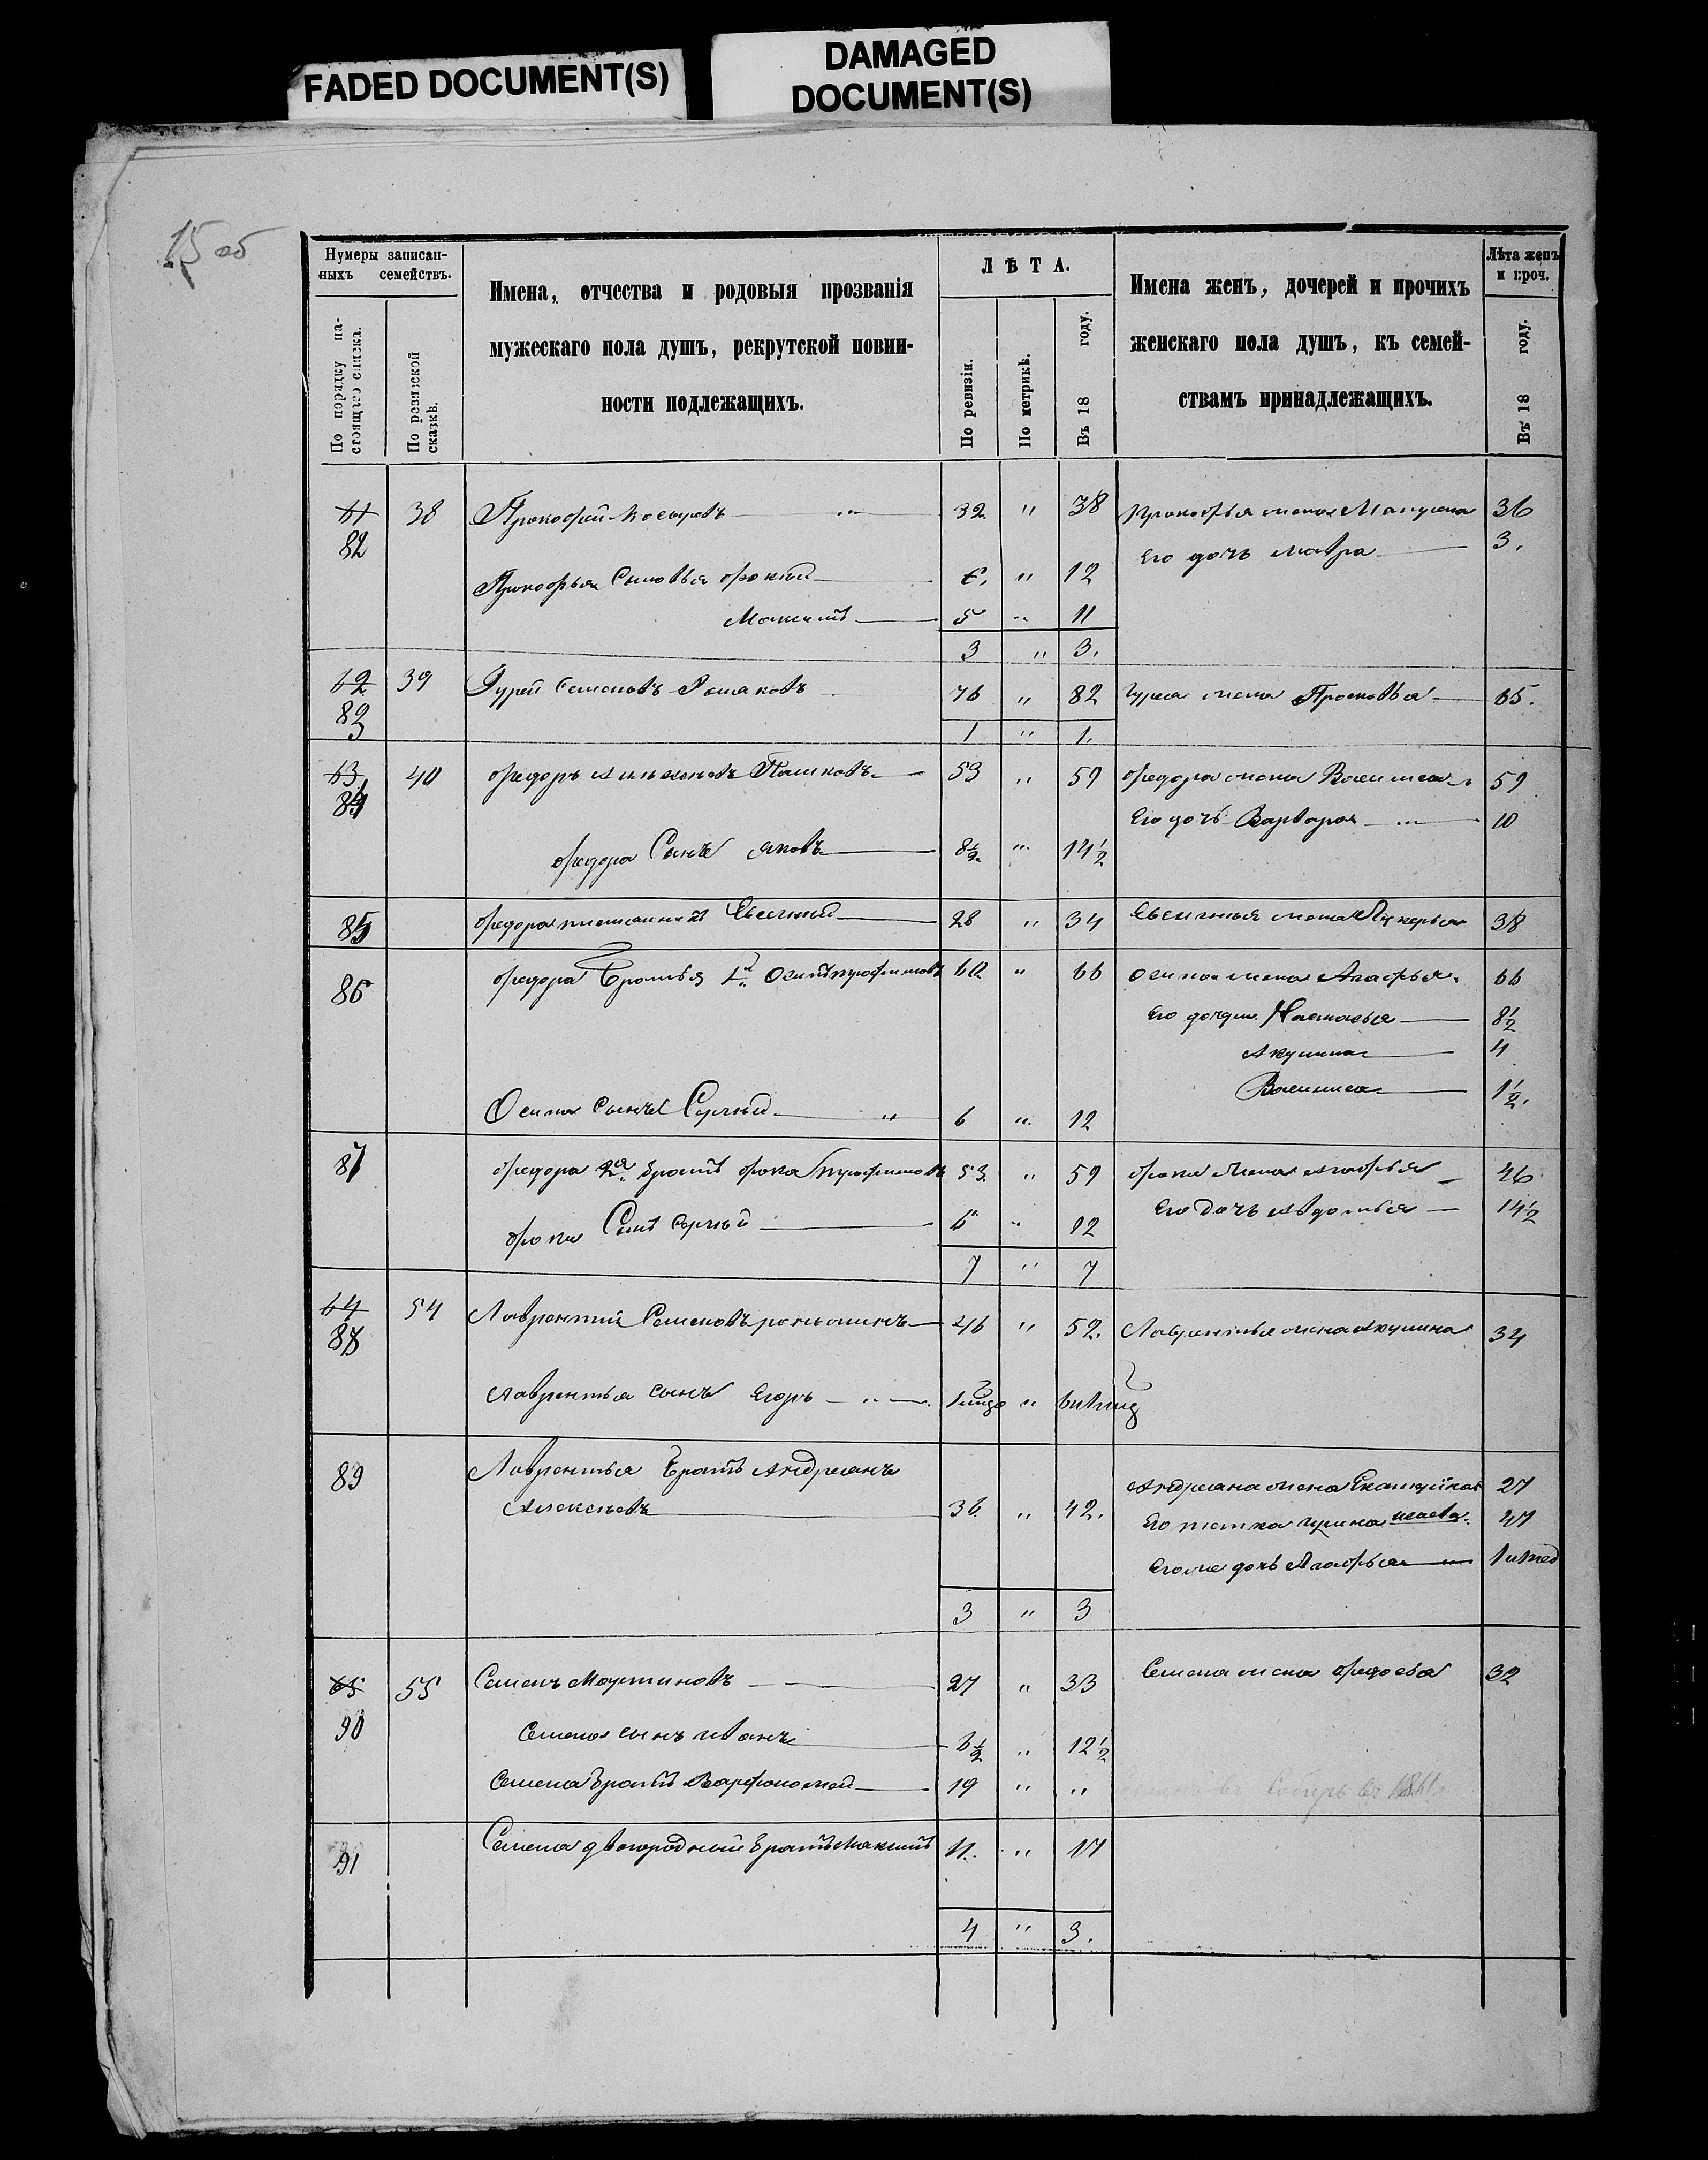 FADED DOCUMENT(S)
DAMAGED
DOCUMENT(S)
15 об
Нумеры записан-
ныхъ семействъ.
По порядку на-
стоящаго списка.
По ревизской
сказкѣ.
Имена, отчества и родовыя прозванія
мужескаго пола душъ, рекрутской повин-
ности подлежащихъ.
ЛѢТА.
По ревизіи.
По метрикѣ.
Въ 18 году.
Имена женъ, дочерей и прочихъ
женскаго пола душъ, къ семей-
ствамъ принадлежащихъ.
Лѣта женъ
и проч.
Въ 18 году.
61 38 Прокофей Косыревъ 32 " 38 Прокофья жена 36
82 Его дочь Мавра 3.
Прокофья Сыновья Фокій 6. " 12
Максимъ 5 " 11
3 " 3.
62 39 Гурей Семеновъ 76 " 82 Гурея жена Прасковья 65.
83 1 " 1.
63 40 Федоръ Пашковъ 53 " 59 Федора жена Василиса 59
84 Его дочь Варвара 10
Федора Сынъ Яковъ 8½ " 14½
85 Федора племянникъ Евсигній 28 " 34 Евсигнья жена Лукерья 38
86 Федора Братья 1й Осипъ Трофимовъ 60 " 66 Осипа жена Агафья 66
Его дочери Настасья 8½
Акулина 4
Василиса 1½.
Осипа Сынъ Сергѣй " 6 " 12
87 Федора 2й братъ Фока Трофимовъ 53 " 59 Фоки жена Агафья 46
Его дочь Авдотья 14½
Фоки Сынъ Сергѣй 6 " 12
7 " 7
64 54 Лаврентій Семеновъ 46 " 52. Лаврентья жена Акулина 34
88
Лаврентья сынъ Егоръ "
89 Лаврентья Братъ Андреянъ
Алексѣевъ 36 " 42. Андреяна жена Екатерина 27
Его тетка Исаева 47
Его же дочь Агафья
3 " 3
65 55 Семенъ Мартиновъ 27 " 33 Семена жена Федосья 32
90
Семена сынъ Иванъ 6½ " 12½
Семена братъ Варфоломей 19 " " въ Сибирь въ 1861
91 Семена двоюродный братъ Максимъ 11. " 17
4 " 3.